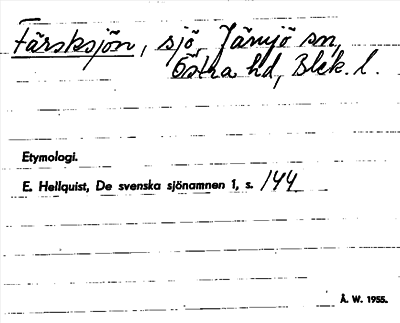 Färsksjön, sjö, Jämjö sn,
Östra hd, Blek. l.
Etymologi.
E. Hellquist, De svenska sjönamnen 1, s. 144
Å. W. 1955.